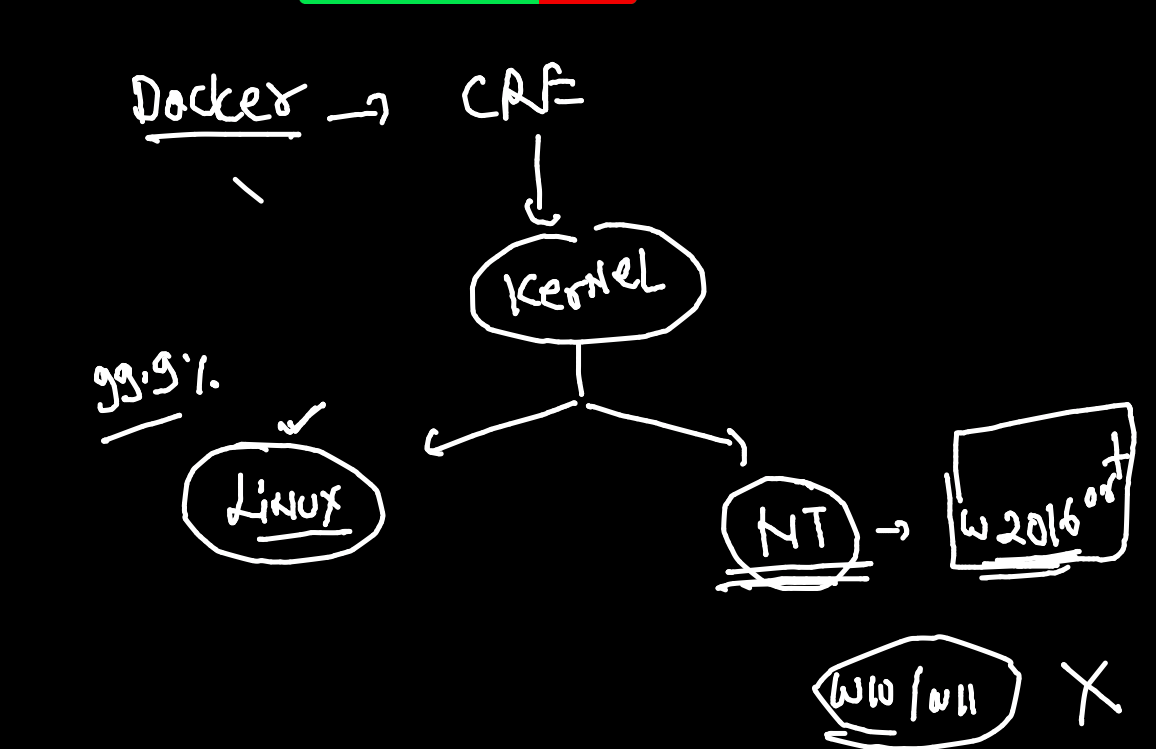 Docker → CRE
Kernel
99.9%
Linux
NT → W 2016 or +
W10 / W11 X